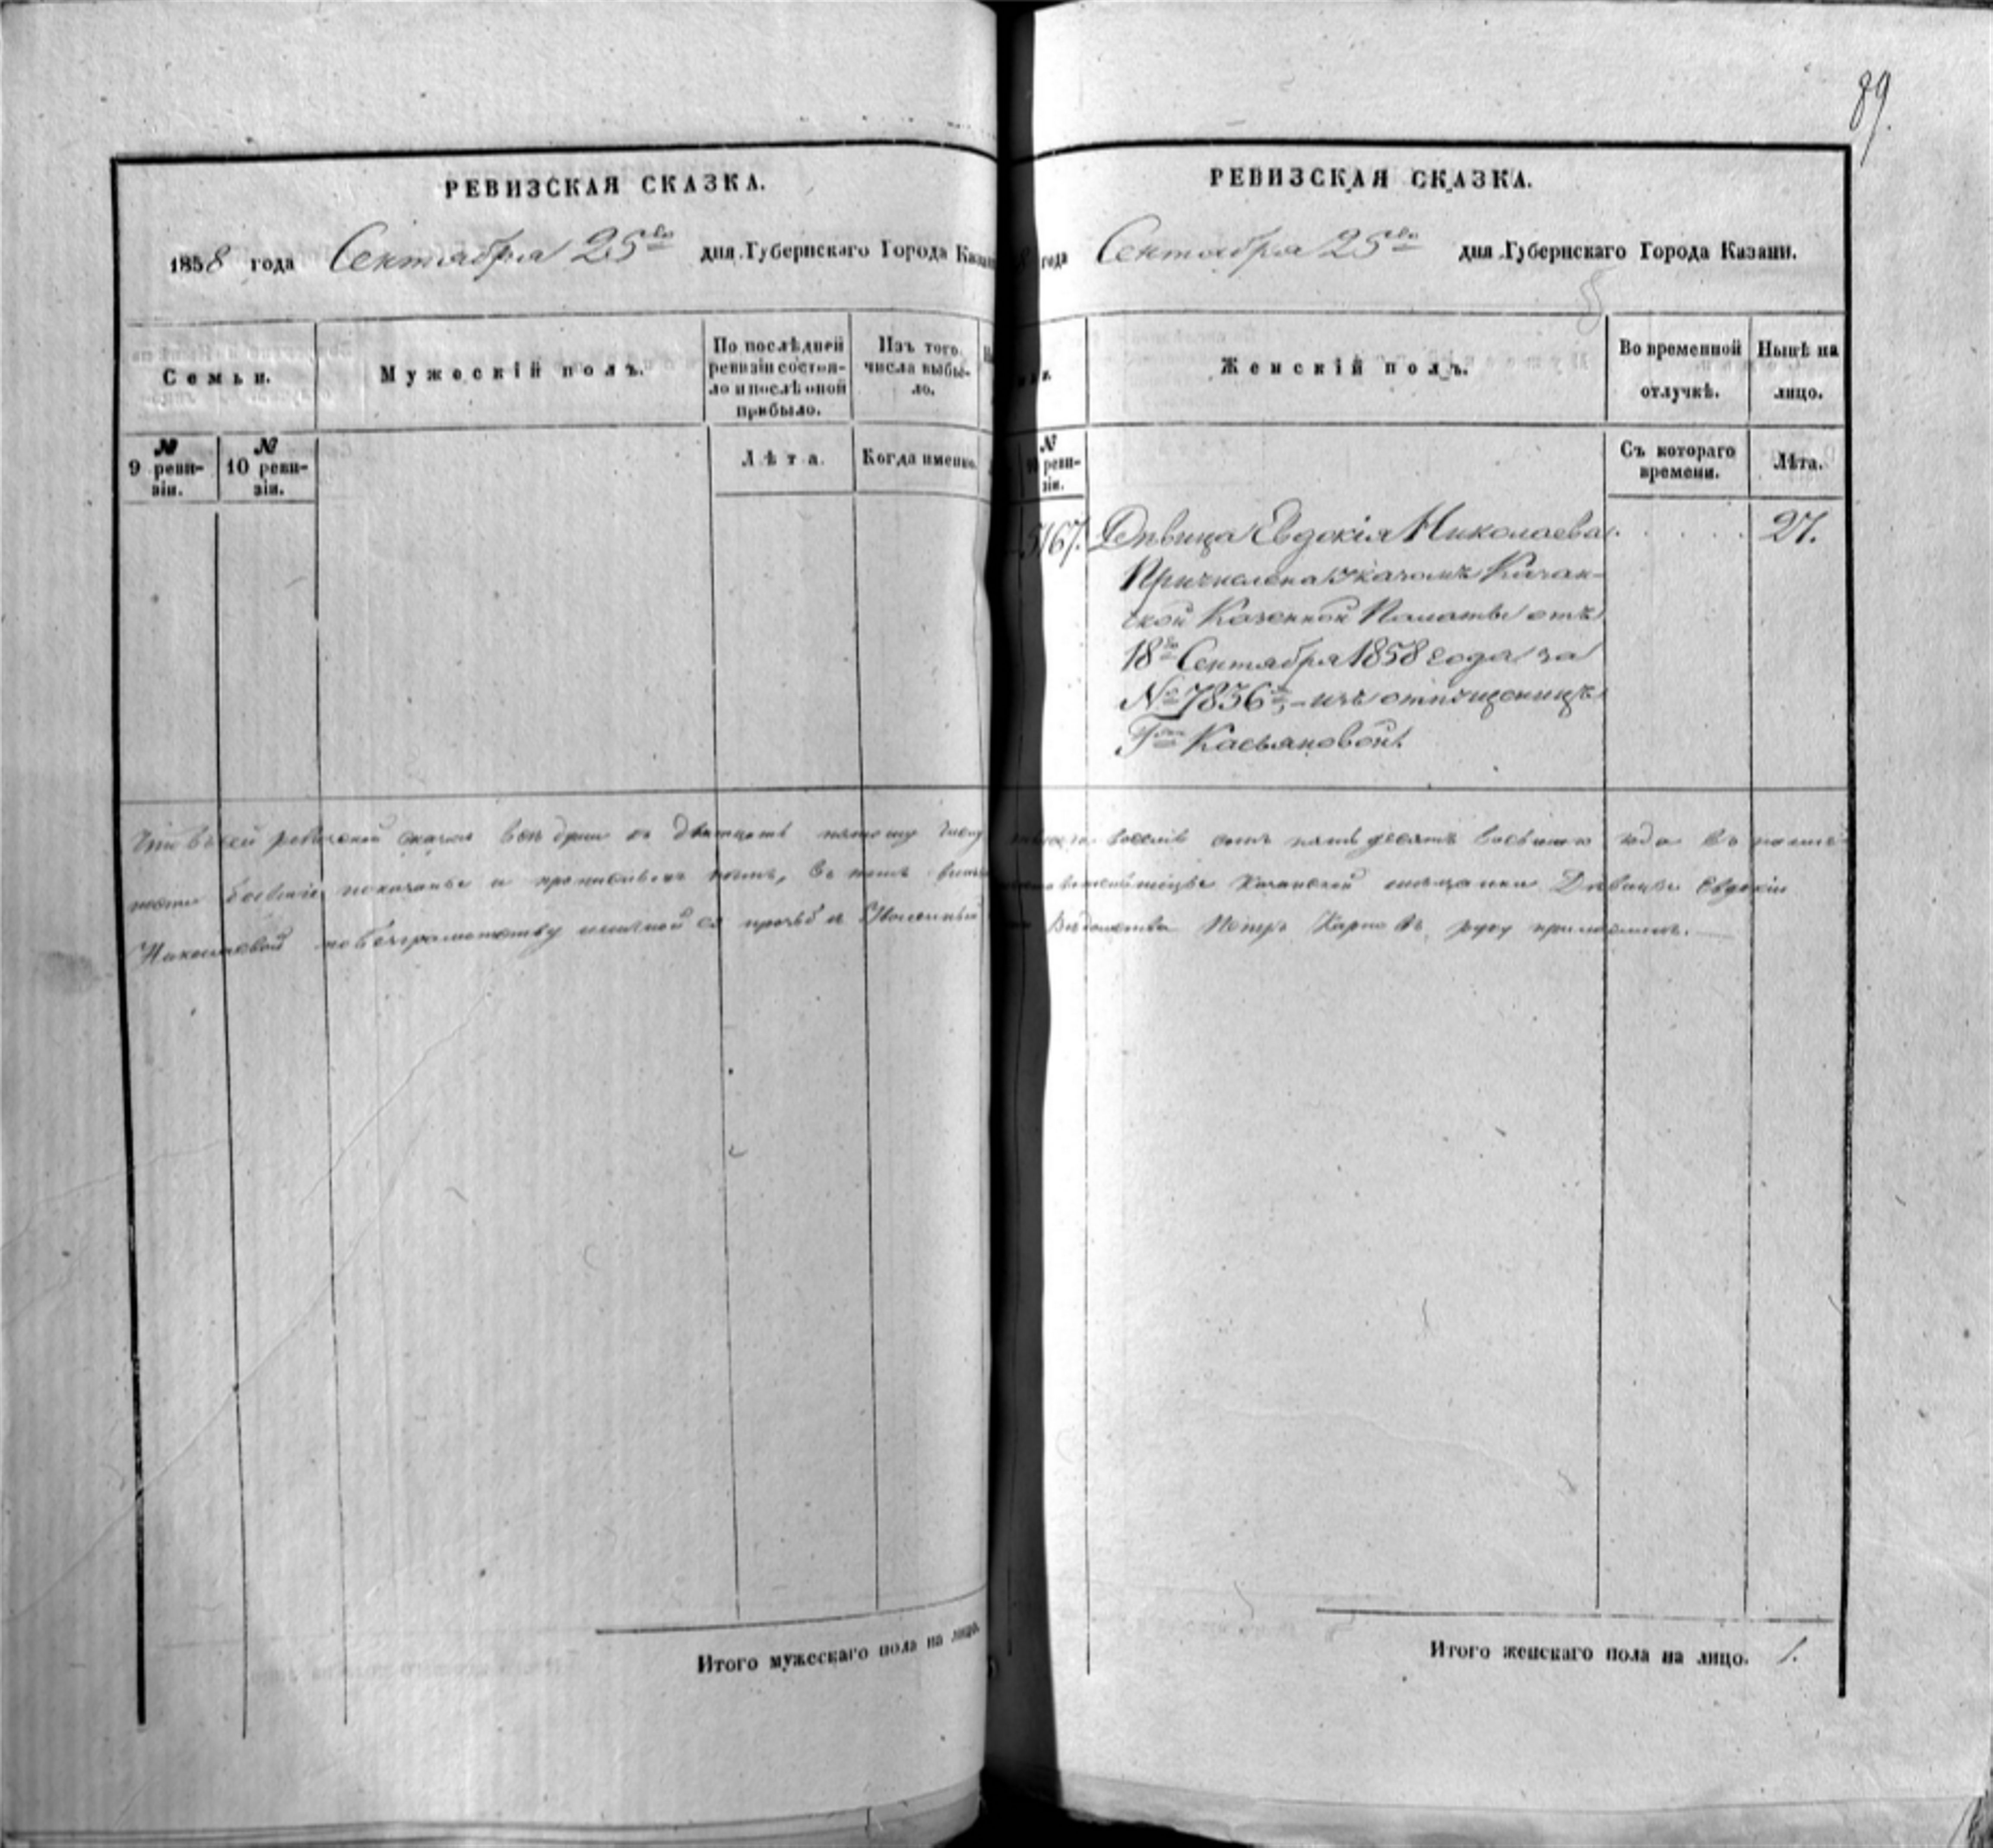 89.
РЕВИЗСКАЯ СКАЗКА.
1858 года Сентября 25го дня Губернскаго Города Казани
Семьи.
Мужескій полъ.
По послѣдней
ревизіи состоя-
ло и послѣ оной
прибыло.
Изъ того
числа выбы-
ло.
№
9 реви-
зіи.
№
10 реви-
зіи.
Лѣта.
Когда именно.
РЕВИЗСКАЯ СКАЗКА.
8 года Сентября 25го дня Губернскаго Города Казани.
Женскій полъ.
Во временной
отлучкѣ.
Нынѣ на
лицо.
№
реви-
зіи.
Съ котораго
времени.
Лѣта.
5167. Дѣвица Евдокія Николаева 27.
Причислена Указомъ Казан-
ской Казенной Палаты отъ
18го Сентября 1858 года за
№ 7836м, изъ отпущеницъ
Гжи Касьяновой.
Что въ сей ревизской сказкѣ всѣ души къ двадцать пятому числу восемь сотъ пятьдесятъ восьмаго года въ
показаны и прописныхъ нѣтъ, въ томъ Казанской мѣщанки Дѣвицы Евдокіи
Николаевой по безграмотству личной ея прозьбѣ Вѣдомства Петръ Карповъ руку приложилъ.
Итого мужескаго пола на лицо.
Итого женскаго пола на лицо. 1.